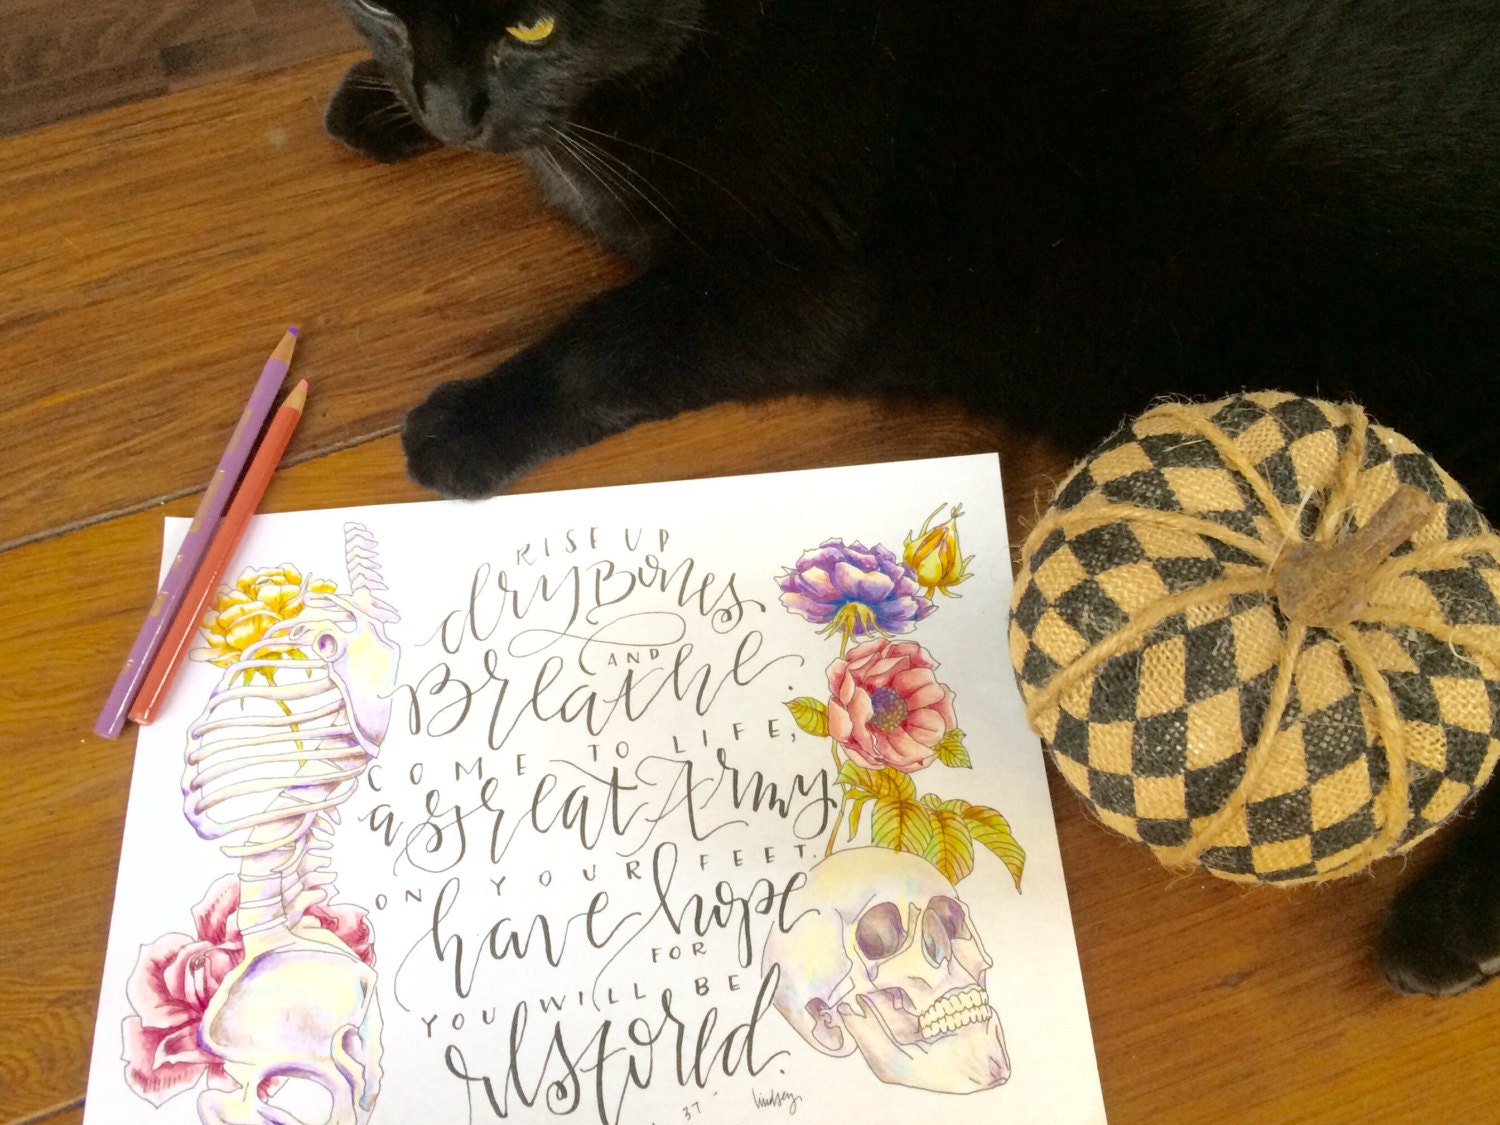 RISE UP
dry Bones
AND
Breathe.
COME TO LIFE,
a great Army
ON YOUR FEET.
have hope
FOR
YOU WILL BE
restored.
37
lindsey